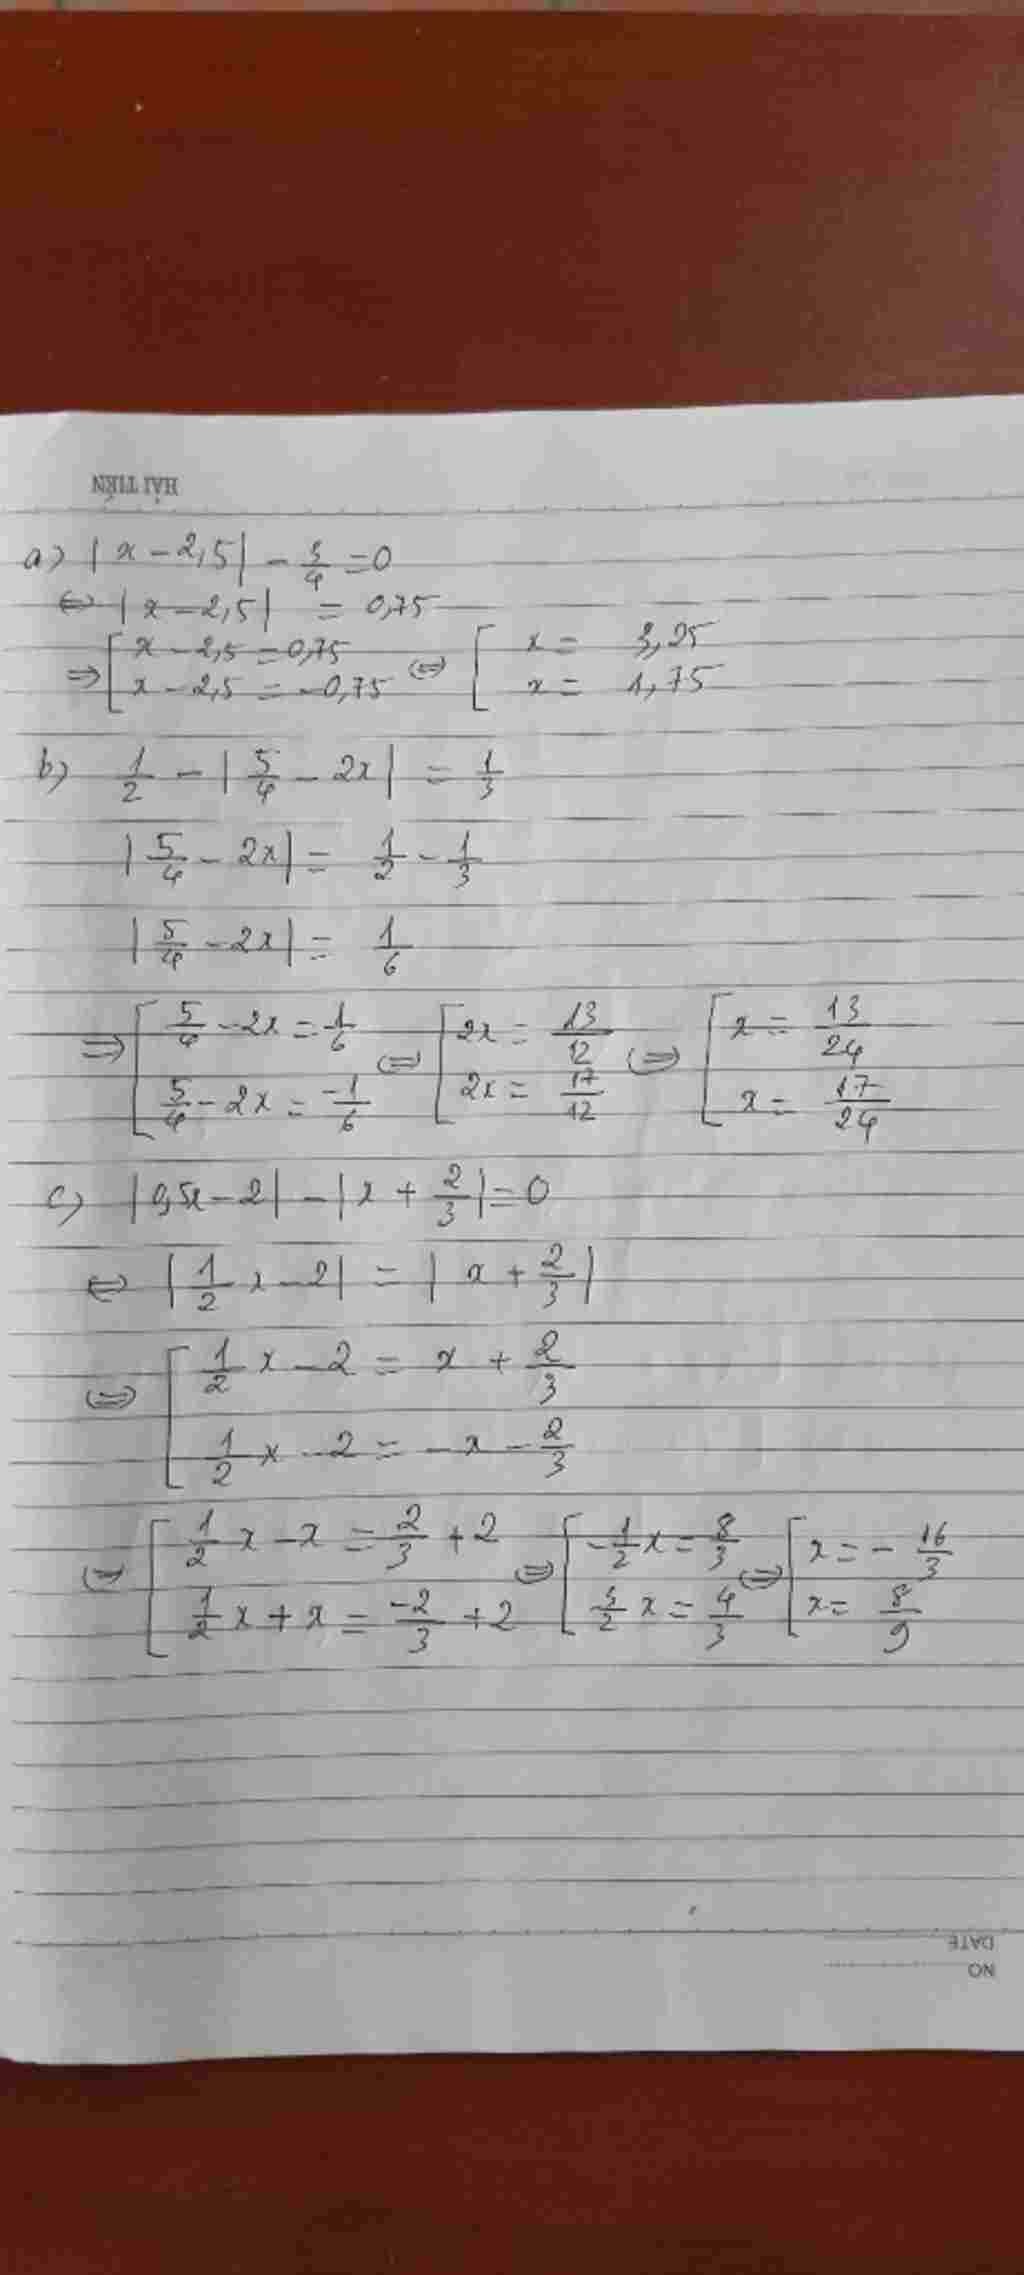 HẢI TIẾN
a) |x - 2,5| - 3/4 = 0
⇔ |x - 2,5| = 0,75
⇒ [ x - 2,5 = 0,75 ; x - 2,5 = -0,75 ⇔ [ x = 3,25 ; x = 1,75
b) 1/2 - |5/4 - 2x| = 1/3
|5/4 - 2x| = 1/2 - 1/3
|5/4 - 2x| = 1/6
⇒ [ 5/4 - 2x = 1/6 ; 5/4 - 2x = -1/6 ⇔ [ 2x = 13/12 ; 2x = 17/12 ⇔ [ x = 13/24 ; x = 17/24
c) |0,5x - 2| - |x + 2/3| = 0
⇔ |1/2 x - 2| = |x + 2/3|
⇔ [ 1/2 x - 2 = x + 2/3 ; 1/2 x - 2 = -x - 2/3
⇔ [ 1/2 x - x = 2/3 + 2 ; 1/2 x + x = -2/3 + 2 ⇔ [ -1/2 x = 8/3 ; 3/2 x = 4/3 ⇔ [ x = - 16/3 ; x = 8/9
DATE
NO